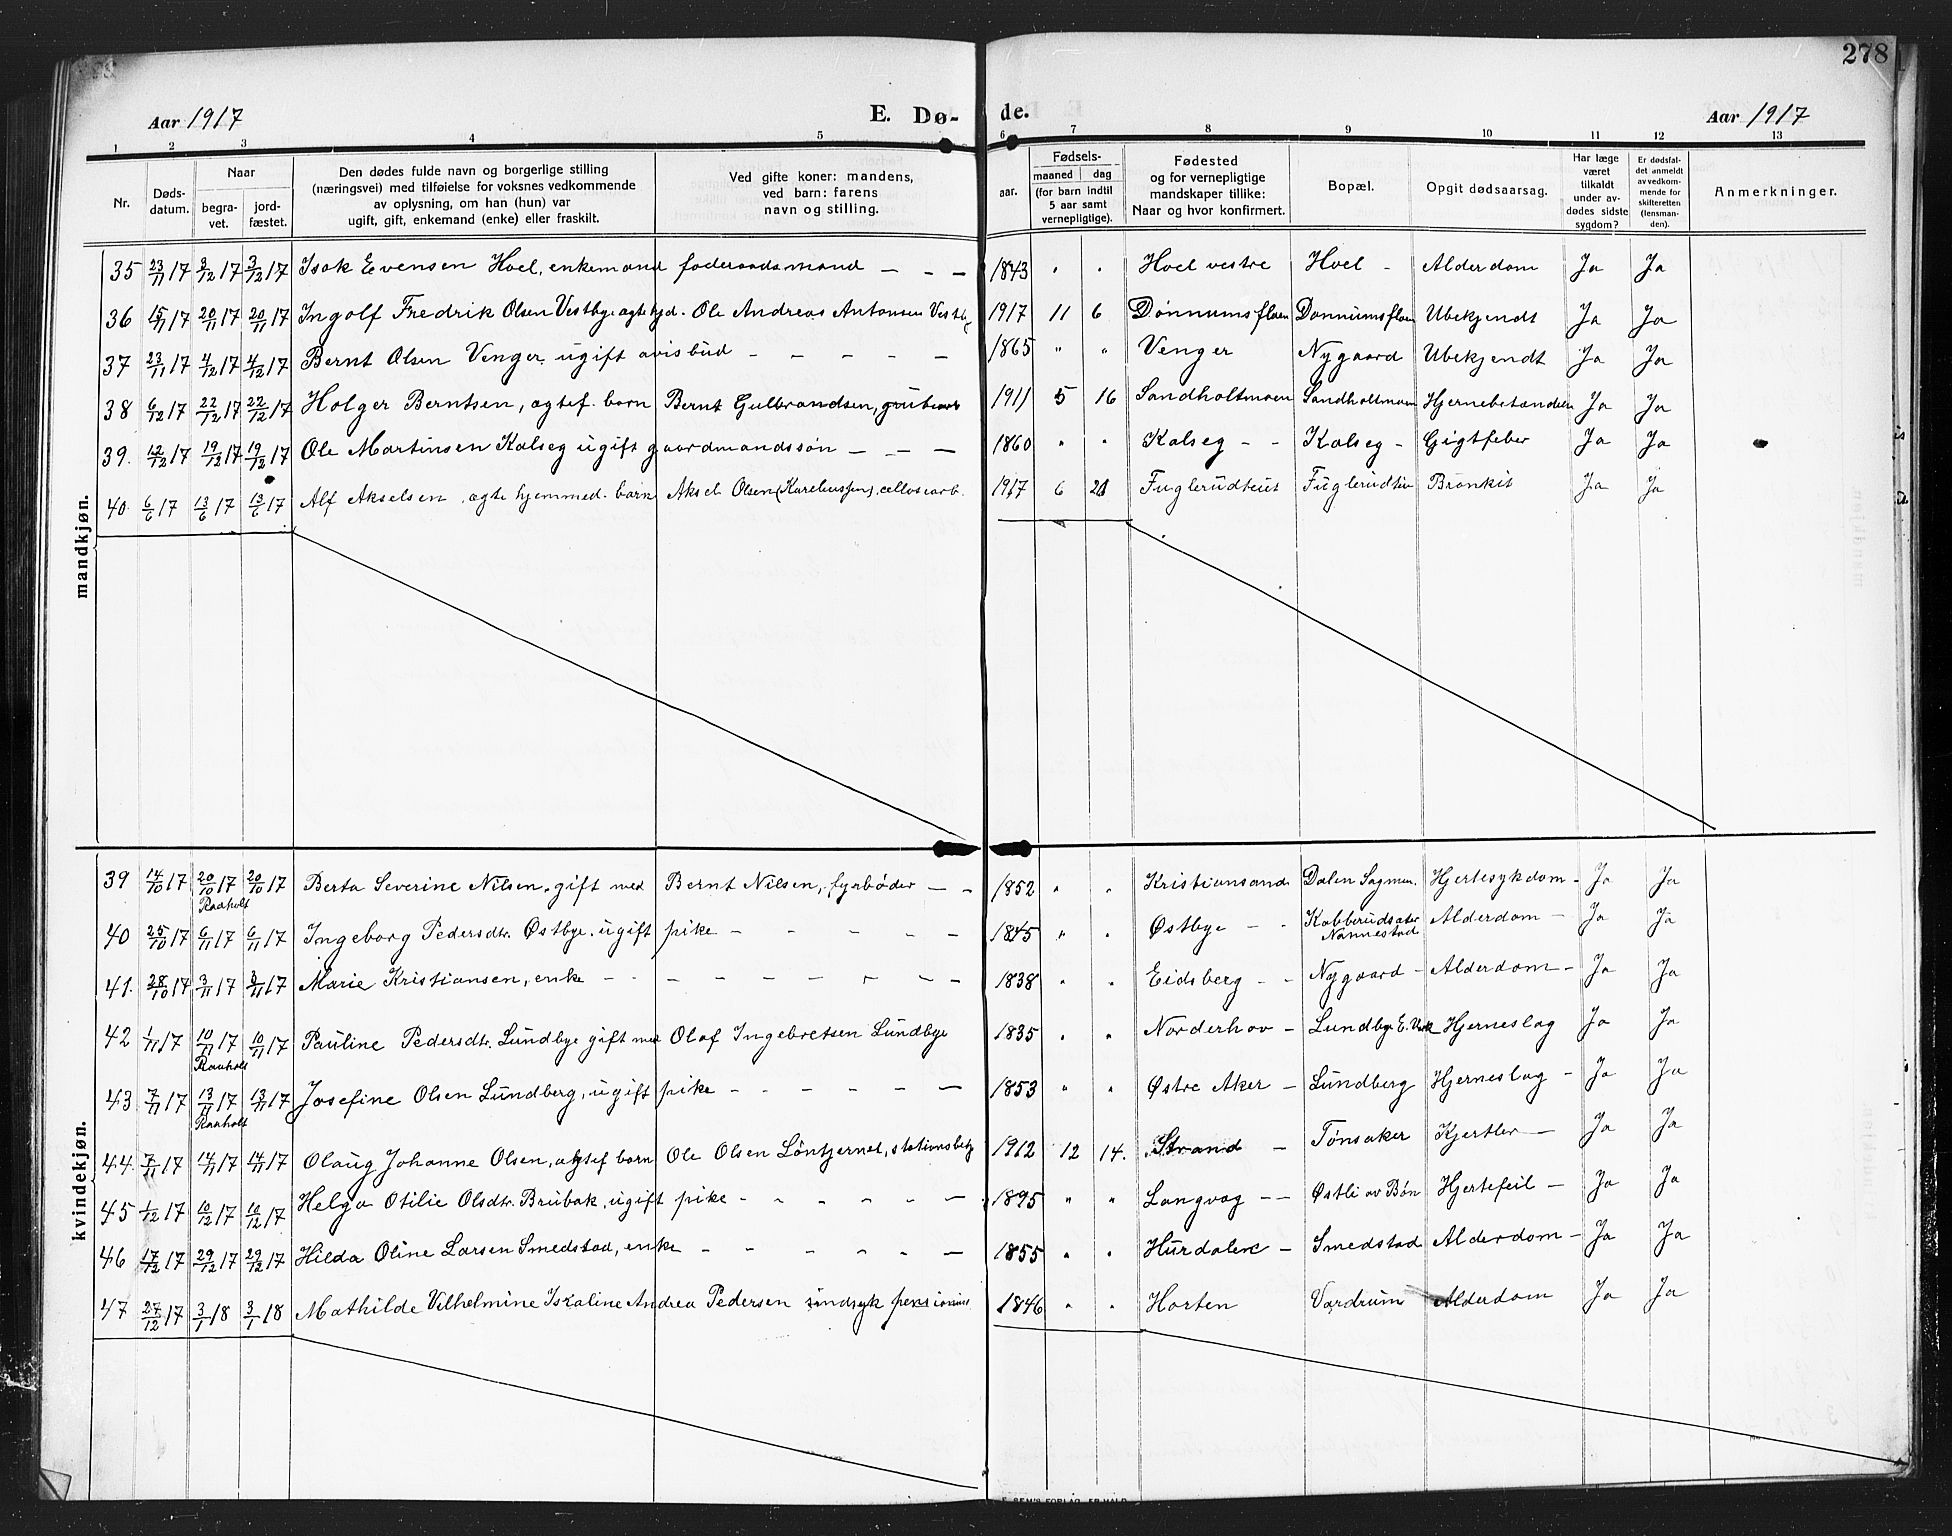 278
Aar 1917 E. Dø- de. Aar 1917
1 2 3 4 5 6 7 8 9 10 11 12 13
Nr. Døds-datum. Naar begra-vet. jord-fæstet. Den dødes fulde navn og borgerlige stilling (næringsvei) med tilføielse for voksnes vedkommende av oplysning, om han (hun) var ugift, gift, enkemand (enke) eller fraskilt. Ved gifte koner: mandens, ved barn: farens navn og stilling. aar. Fødsels- maaned dag (for barn indtil 5 aar samt vernepligtige). Fødested og for vernepligtige mandskaper tillike: Naar og hvor konfirmert. Bopæl. Opgit dødsaarsag. Har læge været tilkaldt under av-dødes sidste sygdom? Er dødsfal-det anmeldt av vedkom-mende for skifteretten (lensman-den). Anmerkninger.
mandkjøn.
35 23/11 17 3/12 17 3/12 17 Isak Evensen Hoel, enkemand føderaadsmand – – – 1843 " " Hoel vestre Hoel – Alderdom Ja Ja
36 15/11 17 20/11 17 20/11 17 Ingolf Fredrik Olsen Vestbye agte hjd. Ole Andreas Antonsen Vestb. 1917 11 6 Dønnumsfloen Dønnumsfloen Ubekjendt Ja Ja
37 23/11 17 4/12 17 4/12 17 Bernt Olsen Venger, ugift avisbud – – – – – 1865 " " Venger Nygaard Ubekjendt Ja Ja
38 6/12 17 22/12 17 22/12 17 Holger Berntsen, agtef. barn Bernt Gulbrandsen, grubearb 1911 5 16 Sandholtmoen Sandholtmoen Hjernebetændelse Ja Ja
39. 12/12 17 19/12 17 19/12 17 Ole Martinsen Kalseg ugift gaardmandssøn – – – 1860 " " Kalseg – – Kalseg – Gigtfeber Ja Ja
40. 6/6 17 13/6 17 13/6 17 Alf Akselsen, agte hjemmed. barn Aksel Olsen (Kareliussen), cellosearb. 1917 6 Fuglerudteiet Fuglerudtei Bronkit Ja Ja
kvindekjøn.
39 14/10 17 20/10 17 Raaholt 20/10 17 Berta Severine Nilsen, gift med Bernt Nilsen, fyrbøder – – 1852 " " Kristiansand Dalen Sagmen. Hjertesykdom – Ja Ja
40 25/10 17 6/11 17 6/11 17 Ingeborg Pedersdtr. Østbye, ugift pike – – – – – 1845 " " Østbye – – Kabberudsæter Nannestad Alderdom – Ja Ja
41. 28/10 17 3/11 17 3/11 17 Marie Kristiansen, enke – – – – – – – – – 1838 " " Eidsberg – – Nygaard – Alderdom – Ja Ja
42 1/11 17 10/11 17 Raaholt 10/11 17 Pauline Pedersdtr. Lundbye gift med Olaf Ingebretsen Lundbye 1835 " " Norderhov – Lundbye E. Verk Hjerneslag Ja Ja
43 7/11 17 13/11 17 Raaholt 13/11 17 Josefine Olsen Lundberg, ugift pike – – – – – 1853 " " Østre Aker – Lundberg Hjerneslag – Ja Ja
44. 7/11 17 14/11 17 14/11 17 Olaug Johanne Olsen, agtef barn Ole Olsen Løntjernet, stationsbetj 1912 12 14. Strand – Tønsaker Kjertler – Ja Ja
45 1/12 17 10/12 17 10/12 17 Helga Otilie Olsdtr. Brubak, ugift pike – – – – – – 1895 " " Langvag – – Østli av Bøn Hjertefeil – Ja Ja
46 17/12 17 29/12 17 29/12 17 Hilda Oline Larsen Smedstad, enke – – – – – – 1855 " " Hurdalen – Smedstad Alderdom – Ja Ja
47 27/12 17 3/1 18 3/1 18 Mathilde Vilhelmine Israline Andrea Pedersen sindsyk pensionist 1846 " " Horten Vardrum Alderdom Ja Ja